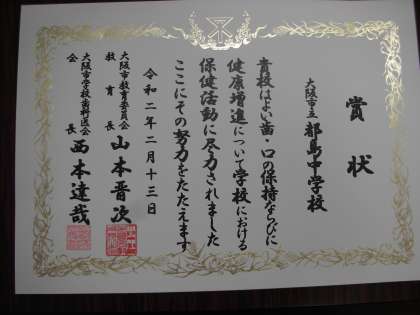 賞状
大阪市立 都島中学校
貴校はよい歯・口の保持ならびに
健康増進について学校における
保健活動に尽力されました
ここにその努力をたたえます
令和二年二月十三日
大阪市教育委員会
教育長 山本晋次
大阪市学校歯科医会
会長 西本達哉